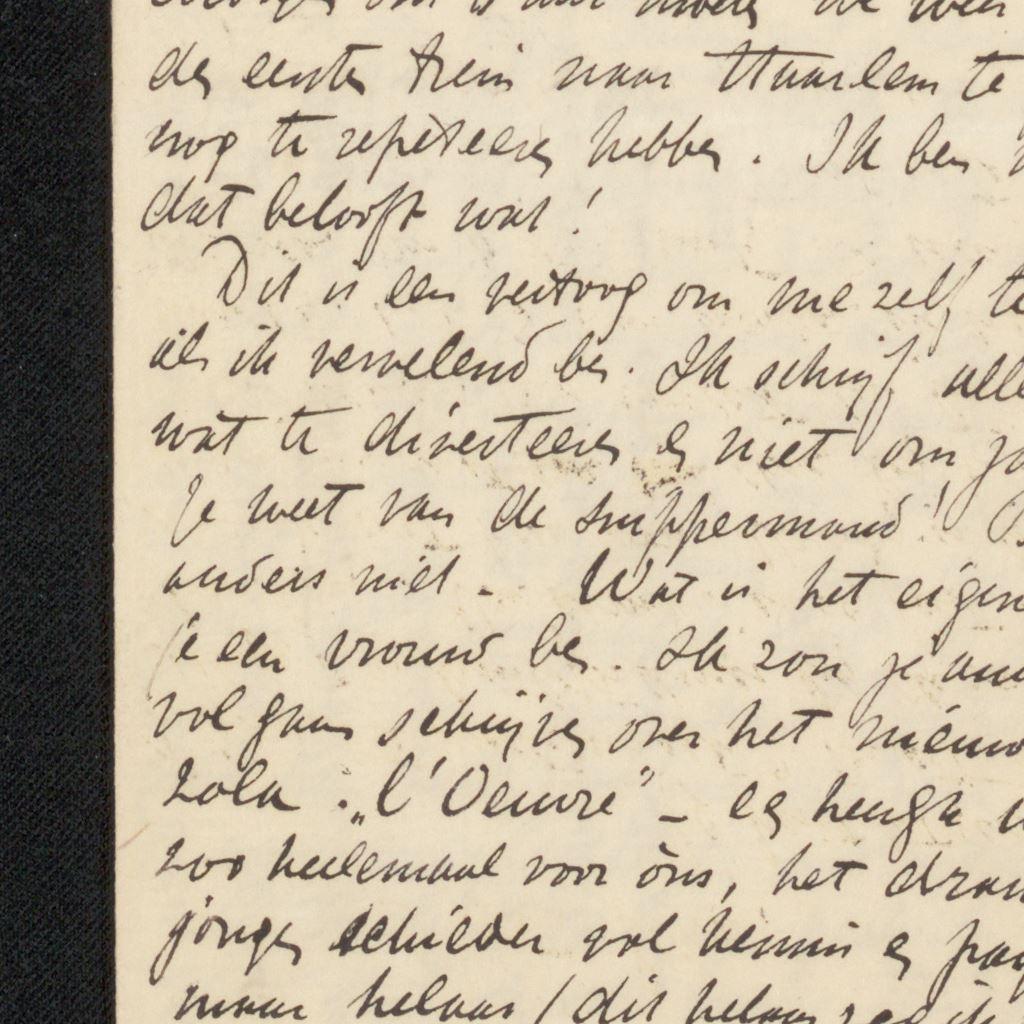 den eersten trein naar Haarlem te
nog te repeteeren hebben. Ik ben
dat belooft wat!
Dit is een vertoog om me zelf te
als ik vervelend ben. Ik schrijf alle
wat te diverteeren en niet om jo
je weet van de snippermand!
anders niet. Wat is het eigen
je een vrouw ben. Ik zou je an
vol gaan schrijven over het nieuw
Zola „l'Oeuvre" – een heugt
zoo heelemaal voor òns, het dram
jongen schilder vol kennis en pas
maar helaas (dit helaas zeg ik